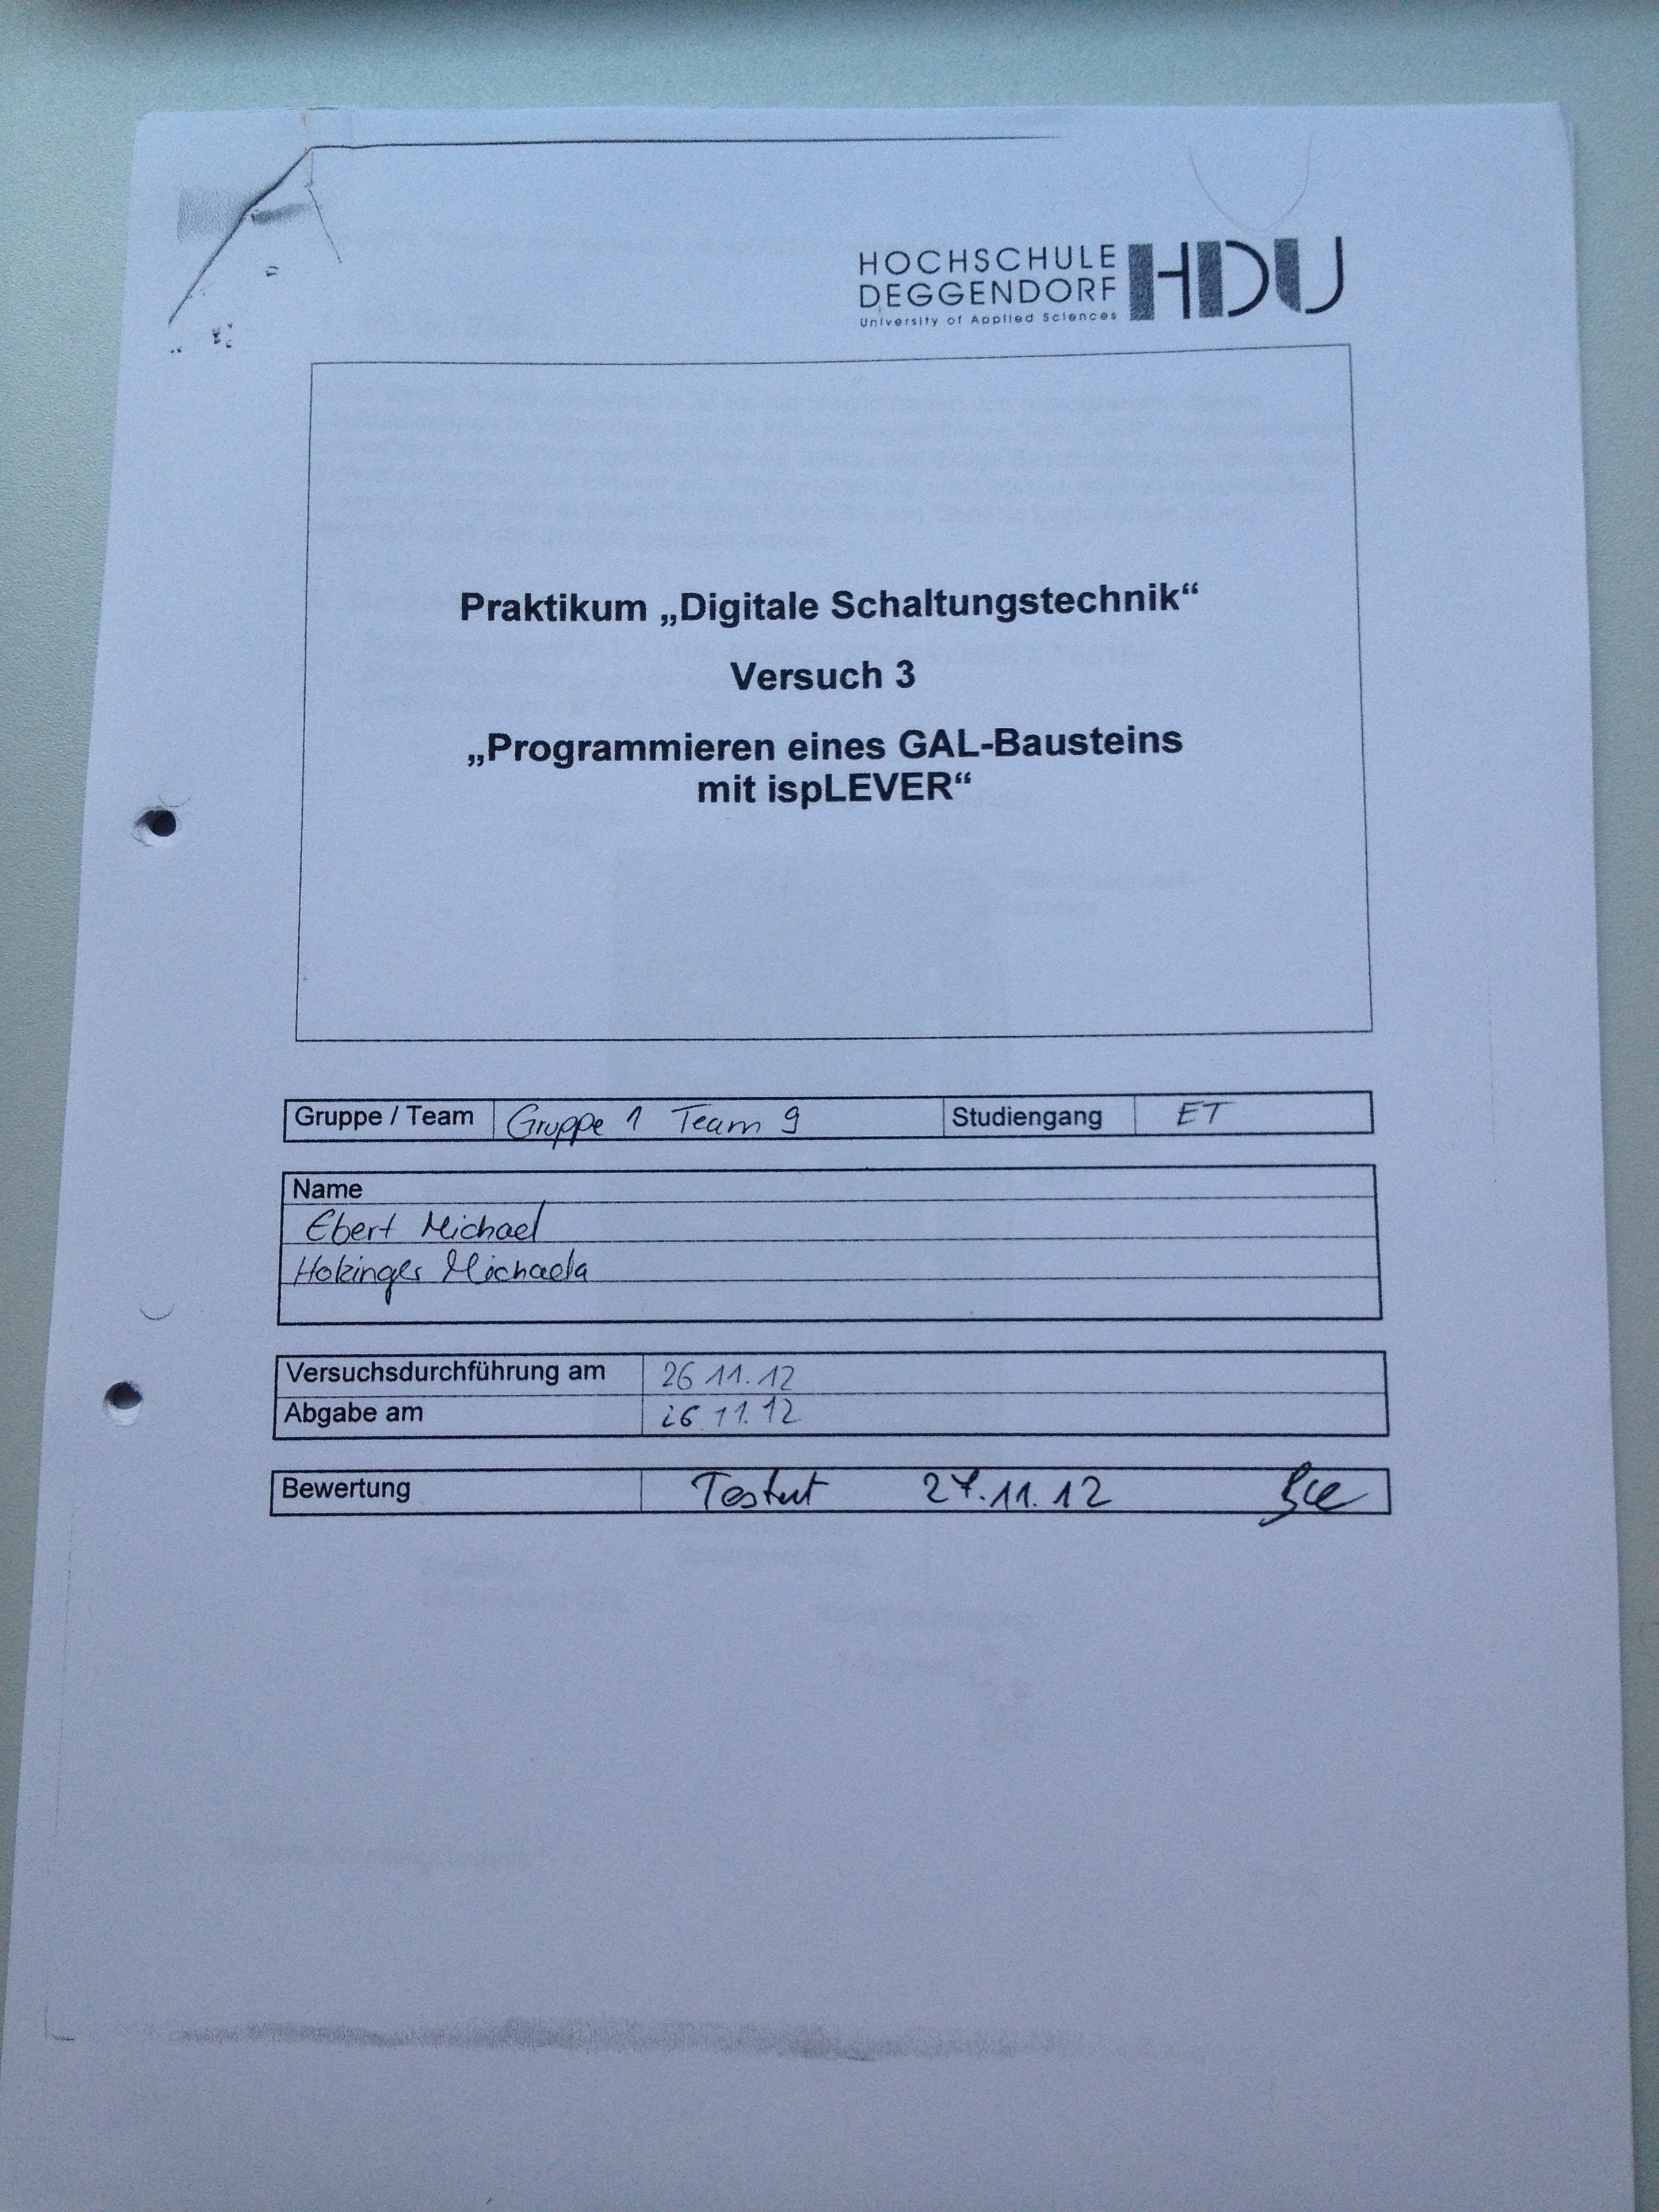 HOCHSCHULE
DEGGENDORF
University of Applied Sciences
HDU
Praktikum „Digitale Schaltungstechnik“
Versuch 3
„Programmieren eines GAL-Bausteins
mit ispLEVER“
Gruppe / Team Gruppe 1 Team 9 Studiengang ET
Name
Ebert Michael
Michaela
Versuchsdurchführung am 26.11.12
Abgabe am 26.11.12
Bewertung Testat 27.11.12